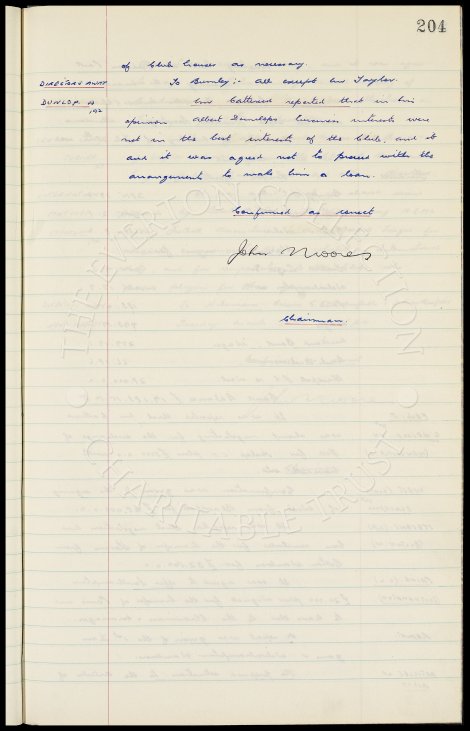 204
of Club houses as necessary.
DIRECTORS AWAY To Burnley:- All except Mr Taylor.
DUNLOP. A Mr Catterick reported that in his
192
opinion Albert Dunlops business interests were
not in the best interests of the Club, and it
and it was agreed not to proceed with the
arrangements to make him a loan.
Confirmed as correct
John Moores
Chairman.
THE EVERTON COLLECTION
CHARITABLE TRUST